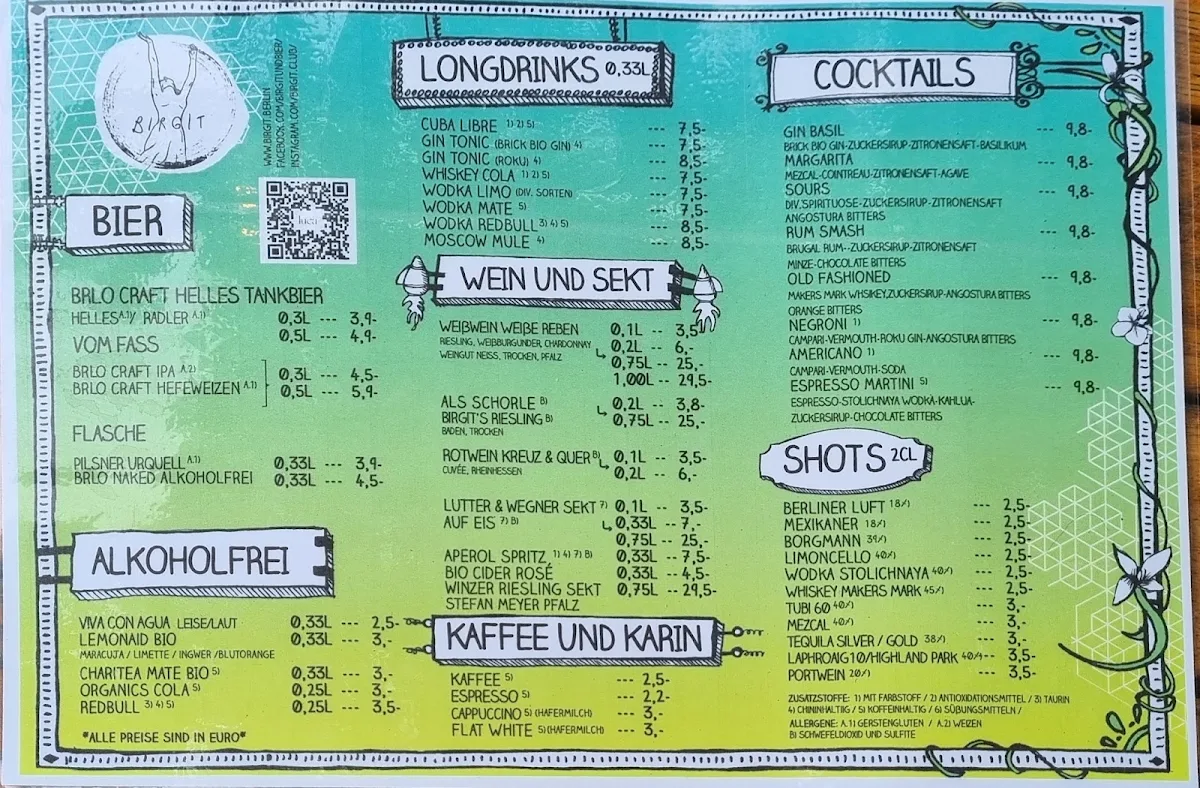 BIRGIT
WWW.BIRGIT.BERLIN
FACEBOOK.COM/BIRGITUNDBIER/
INSTAGRAM.COM/BIRGIT.CLUB/
luca
BIER
BRLO CRAFT HELLES TANKBIER
HELLES A.1)/ RADLER A.1) 0,3L --- 3,9-
0,5L --- 4,9-
VOM FASS
BRLO CRAFT IPA A.2) 0,3L --- 4,5-
BRLO CRAFT HEFEWEIZEN A.1) 0,5L --- 5,9-
FLASCHE
PILSNER URQUELL A.1) 0,33L --- 3,9-
BRLO NAKED ALKOHOLFREI 0,33L --- 4,5-
ALKOHOLFREI
VIVA CON AGUA LEISE/LAUT 0,33L --- 2,5-
LEMONAID BIO 0,33L --- 3,-
MARACUJA / LIMETTE / INGWER /BLUTORANGE
CHARITEA MATE BIO 5) 0,33L --- 3,-
ORGANICS COLA 5) 0,25L --- 3,-
REDBULL 3) 4) 5) 0,25L --- 3,5-
*ALLE PREISE SIND IN EURO*
LONGDRINKS 0,33L
CUBA LIBRE 1) 2) 5) --- 7,5-
GIN TONIC (BRICK BIO GIN) 4) --- 7,5-
GIN TONIC (ROKU) 4) --- 8,5-
WHISKEY COLA 1) 2) 5) --- 7,5-
WODKA LIMO (DIV. SORTEN) --- 7,5-
WODKA MATE 5) --- 7,5-
WODKA REDBULL 3) 4) 5) --- 8,5-
MOSCOW MULE 4) --- 8,5-
WEIN UND SEKT
WEIßWEIN WEIßE REBEN 0,1L -- 3,5-
RIESLING, WEIßBURGUNDER, CHARDONNAY 0,2L -- 6,-
WEINGUT NEISS, TROCKEN, PFALZ 0,75L -- 25,-
1,00L -- 29,5-
ALS SCHORLE B) 0,2L -- 3,8-
BIRGIT'S RIESLING B) 0,75L -- 25,-
BADEN, TROCKEN
ROTWEIN KREUZ & QUER B) 0,1L -- 3,5-
CUVÉE, RHEINHESSEN 0,2L -- 6,-
LUTTER & WEGNER SEKT 7) 0,1L -- 3,5-
AUF EIS 7) B) 0,33L -- 7,-
0,75L -- 25,-
APEROL SPRITZ 1) 4) 7) B) 0,33L -- 7,5-
BIO CIDER ROSÉ 0,33L -- 4,5-
WINZER RIESLING SEKT 0,75L -- 29,5-
STEFAN MEYER PFALZ
KAFFEE UND KARIN
KAFFEE 5) --- 2,5-
ESPRESSO 5) --- 2,2-
CAPPUCCINO 5) (HAFERMILCH) --- 3,-
FLAT WHITE 5) (HAFERMILCH) --- 3,-
COCKTAILS
GIN BASIL --- 9,8-
BRICK BIO GIN-ZUCKERSIRUP-ZITRONENSAFT-BASILIKUM
MARGARITA --- 9,8-
MEZCAL-COINTREAU-ZITRONENSAFT-AGAVE
SOURS --- 9,8-
DIV.SPIRITUOSE-ZUCKERSIRUP-ZITRONENSAFT
ANGOSTURA BITTERS
RUM SMASH --- 9,8-
BRUGAL RUM--ZUCKERSIRUP-ZITRONENSAFT
MINZE-CHOCOLATE BITTERS
OLD FASHIONED --- 9,8-
MAKERS MARK WHSIKEY,ZUCKERSIRUP-ANGOSTURA BITTERS
ORANGE BITTERS
NEGRONI 1) --- 9,8-
CAMPARI-VERMOUTH-ROKU GIN-ANGOSTURA BITTERS
AMERICANO 1) --- 9,8-
CAMPARI-VERMOUTH-SODA
ESPRESSO MARTINI 5) --- 9,8-
ESPRESSO-STOLICHNAYA WODKA-KAHLUA-
ZUCKERSIRUP-CHOCOLATE BITTERS
SHOTS 2CL
BERLINER LUFT 18%) --- 2,5-
MEXIKANER 18%) --- 2,5-
BORGMANN 39%) --- 2,5-
LIMONCELLO 40%) --- 2,5-
WODKA STOLICHNAYA 40%) --- 2,5-
WHISKEY MAKERS MARK 45%) --- 2,5-
TUBI 60 40%) --- 3,-
MEZCAL 40%) --- 3,-
TEQUILA SILVER / GOLD 38%) --- 3,-
LAPHROAIG10/HIGHLAND PARK 40%-- 3,5-
PORTWEIN 20%) --- 3,5-
ZUSATZSTOFFE: 1) MIT FARBSTOFF / 2) ANTIOXIDATIONSMITTEL / 3) TAURIN
4) CHININHALTIG / 5) KOFFEINHALTIG / 6) SÜßUNGSMITTELN /
ALLERGENE: A.1) GERSTENGLUTEN / A.2) WEIZEN
B) SCHWEFELDIOXID UND SULFITE